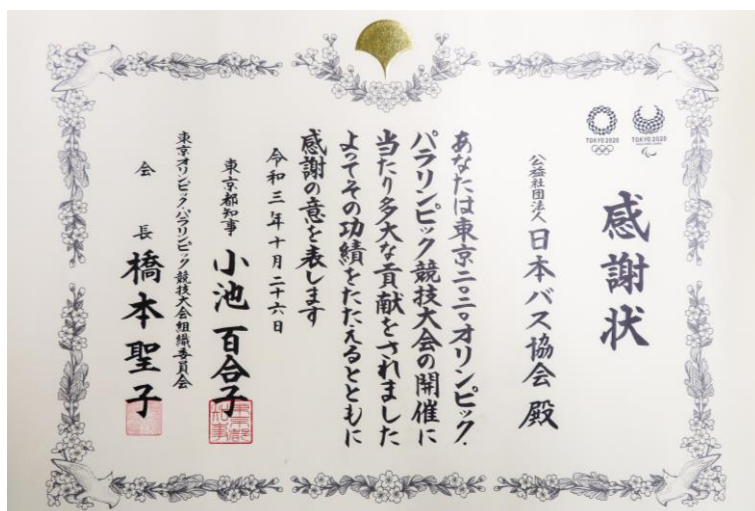 感謝状
TOKYO 2020
TOKYO 2020
公益社団法人 日本バス協会 殿
あなたは東京二〇二〇オリンピック・
パラリンピック競技大会の開催に
当たり多大な貢献をされました
よってその功績をたたえるとともに
感謝の意を表します
令和三年十月二十六日
東京都知事 小池百合子
東京オリンピック・パラリンピック競技大会組織委員会
会長 橋本聖子